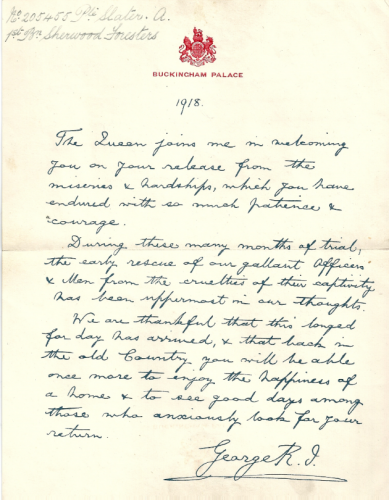 No 205455 Pte Slater. A.
1st Bn Sherwood Foresters
BUCKINGHAM PALACE
1918.
The Queen joins me in welcoming
you on your release from the
miseries & hardships, which you have
endured with so much patience &
courage.
During these many months of trial,
the early rescue of our gallant Officers
& Men from the cruelties of their captivity
has been uppermost in our thoughts.
We are thankful that this longed
for day has arrived, & that back in
the old Country you will be able
once more to enjoy the happiness of
a home & to see good days among
those who anxiously look for your
return.
George R.I.